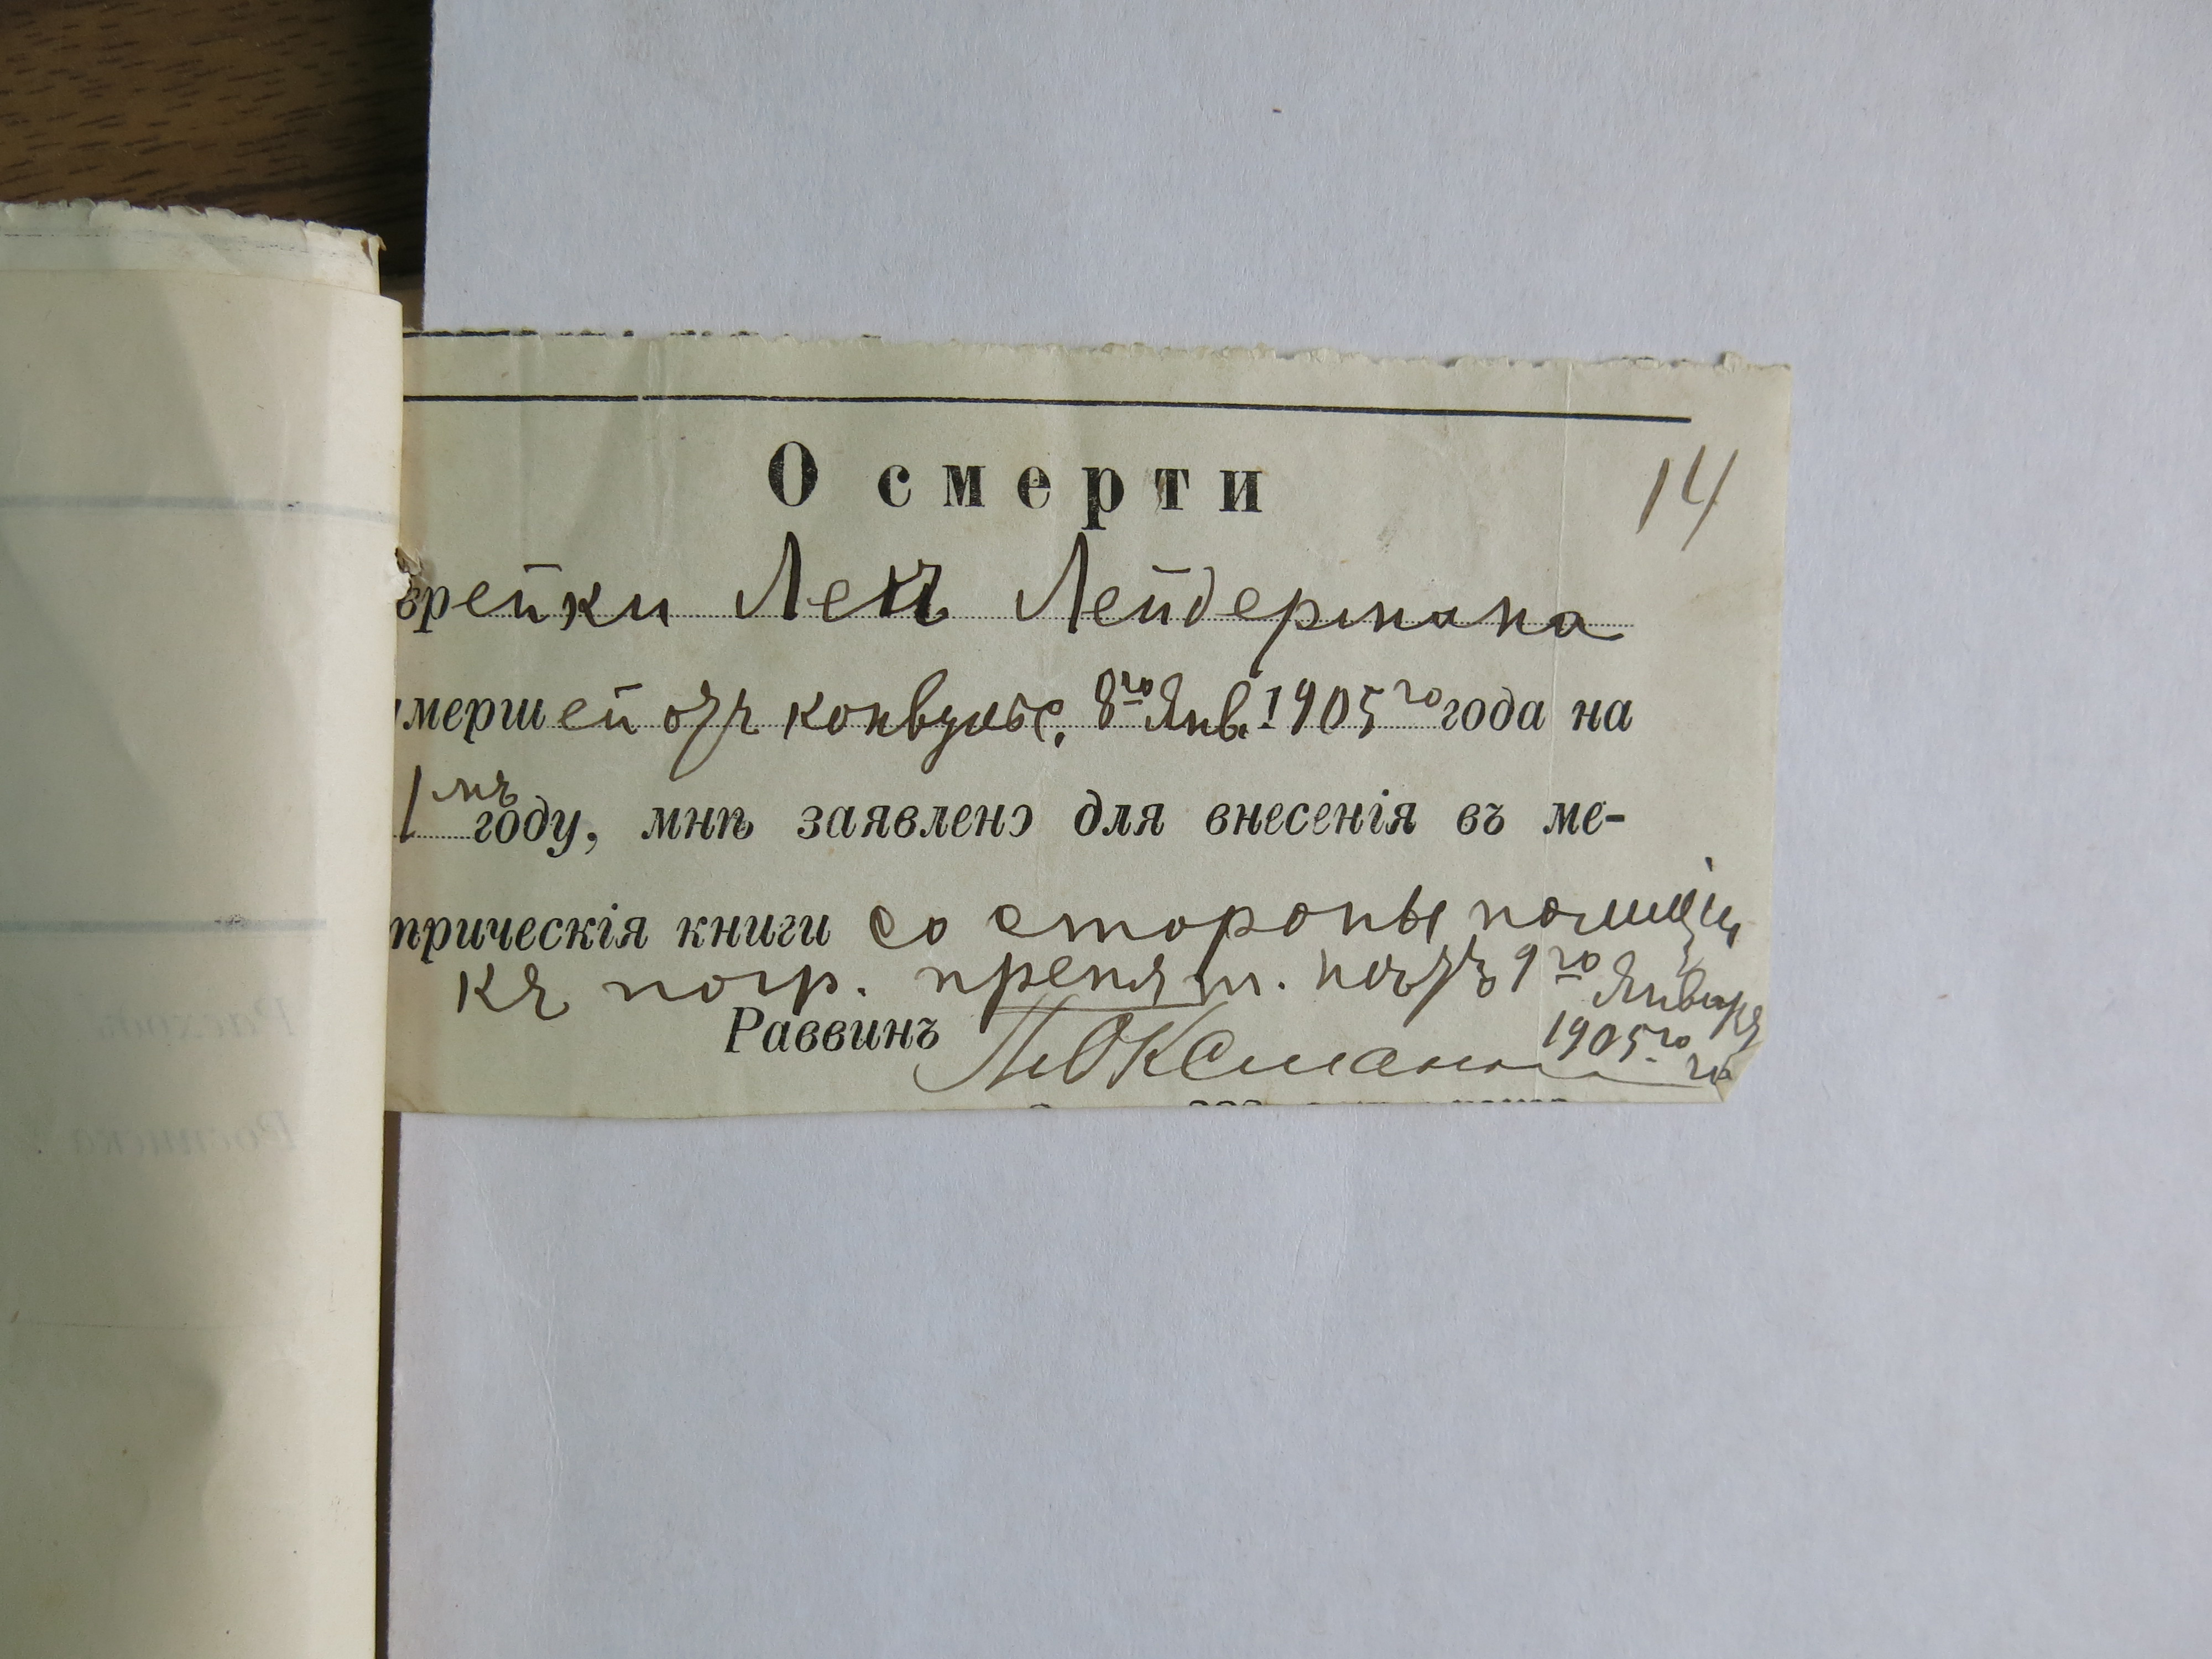 О смерти
14
врейки Леи Лейдермана
мершей отъ конвульс. 8го Янв. 1905го года на
1мъ году, мнѣ заявлено для внесенія въ ме-
трическія книги со стороны полиціи
къ погр. препят. нѣтъ 9го Января
Раввинъ
1905го
го